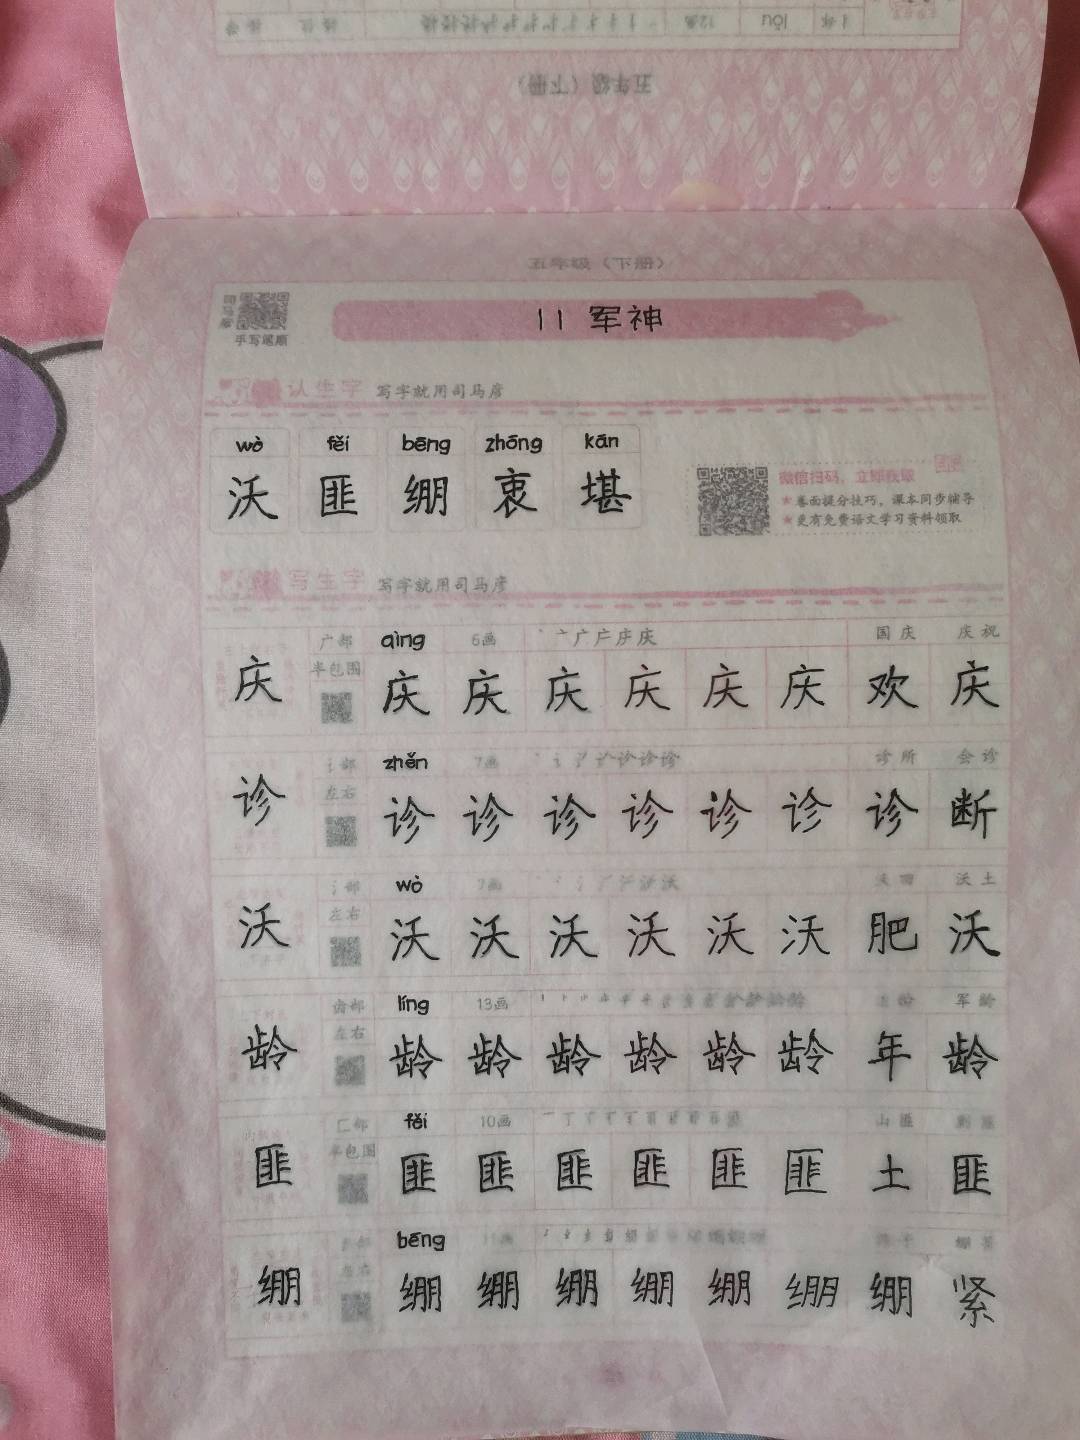 11 军神
手写笔顺
认生字 写字就用司马彦
wò fěi bēng zhōng kān
沃 匪 绷 衷 堪
微信扫码，立即获取
★卷面提分技巧，课本同步辅导
★更有免费语文学习资料领取
写生字 写字就用司马彦
广部 qìng 6画 国庆 庆祝
半包围
庆 庆 庆 庆 庆 庆 庆 欢 庆
讠部 zhěn 7画 诊所 会诊
左右
诊 诊 诊 诊 诊 诊 诊 诊 断
氵部 wò 7画 沃土
左右
沃 沃 沃 沃 沃 沃 沃 肥 沃
齿部 líng 13画 军龄
左右
龄 龄 龄 龄 龄 龄 龄 年 龄
匚部 fěi 10画 山匪
半包围
匪 匪 匪 匪 匪 匪 匪 土 匪
bēng 11画
左右
绷 绷 绷 绷 绷 绷 绷 绷 紧